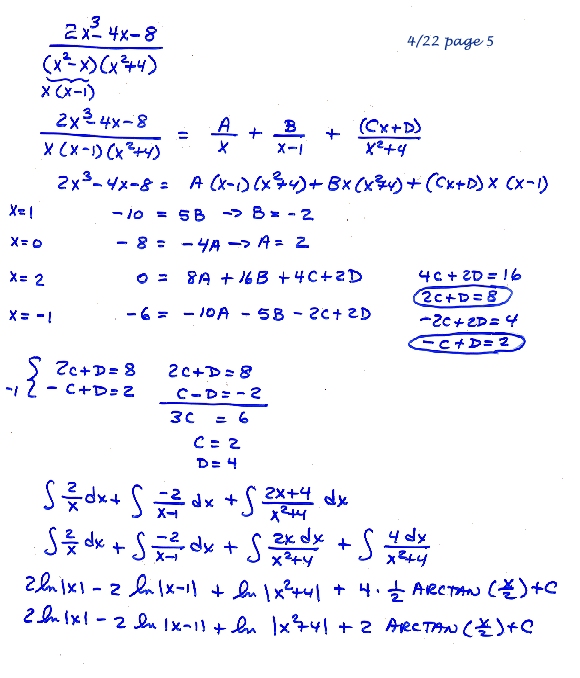 4/22 page 5
2x³-4x-8
(x²-x)(x²+4)
x(x-1)
2x³-4x-8 / x(x-1)(x²+4) = A/x + B/x-1 + (Cx+D)/x²+4
2x³-4x-8 = A(x-1)(x²+4)+Bx(x²+4)+(Cx+D)x(x-1)
x=1 -10 = 5B -> B=-2
x=0 -8 = -4A -> A=2
x=2 0 = 8A+16B+4C+2D 4C+2D=16
2C+D=8
x=-1 -6 = -10A-5B-2C+2D -2C+2D=4
-C+D=2
{ 2C+D=8 2C+D=8
-1 { -C+D=2 C-D=-2
3C = 6
C=2
D=4
∫ 2/x dx + ∫ -2/x-1 dx + ∫ 2x+4/x²+4 dx
∫ 2/x dx + ∫ -2/x-1 dx + ∫ 2x dx/x²+4 + ∫ 4 dx/x²+4
2ln|x| - 2 ln|x-1| + ln|x²+4| + 4·1/2 ARCTAN(x/2)+C
2ln|x| - 2 ln|x-1| + ln|x²+4| + 2 ARCTAN(x/2)+C